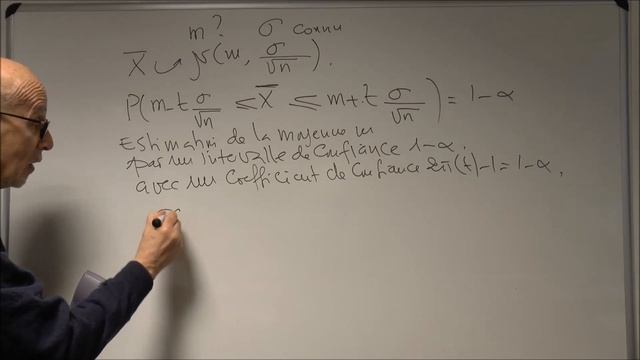 m? σ connu
X̄ ↪ N(m, σ/√n).
P(m-t σ/√n ≤ X̄ ≤ m+t σ/√n) = 1-α
Estimation de la moyenne m
par un intervalle de confiance 1-α.
avec un coefficient de confiance 2π(t)-1 = 1-α,